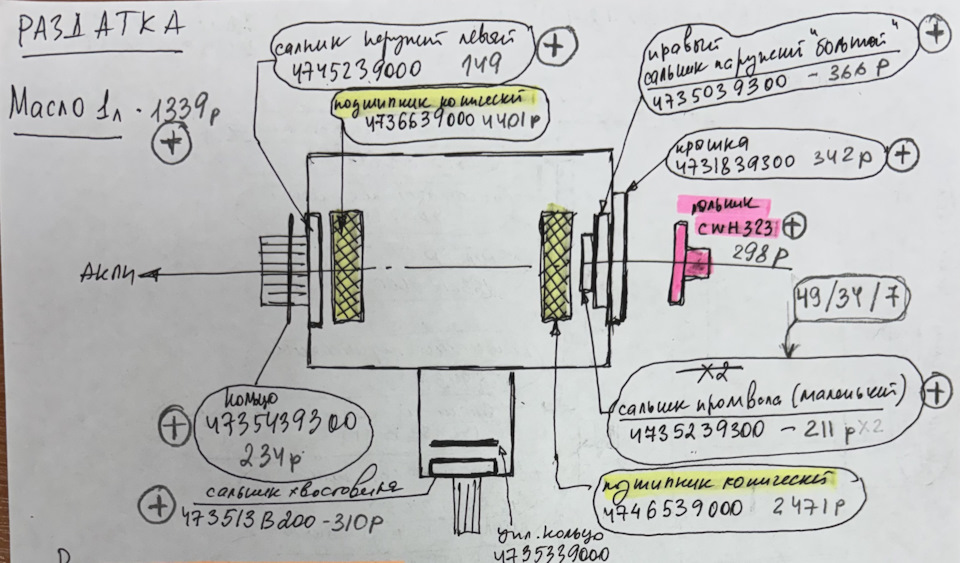 РАЗДАТКА
Масло 1л - 1339р
+
сальник наружний левый
4745239000 149
+
подшипник конический
4736639000 4401р
правый
сальник наружний "большой"
4735039300 - 366 р
+
крышка
4731839300 342р
+
сальник
CWH323
298 р
+
АКПП
49/34/7
х2
сальник промвала (маленький)
4735239300 - 211 р х2
+
кольцо
4735439300
234р
+
сальник хвостовика
473513B200 - 310р
+
подшипник конический
4746539000 2471р
упл. кольцо
4735339000